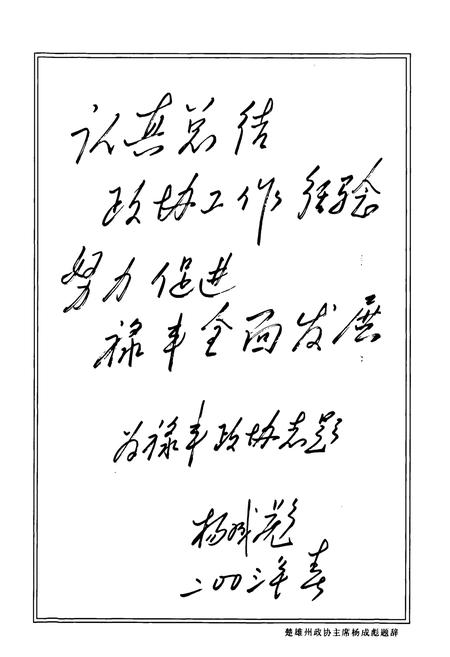 认真总结
政协工作经验
努力促进
禄丰全面发展
为禄丰政协志题
杨成彪
二〇〇二年春
楚雄州政协主席杨成彪题辞